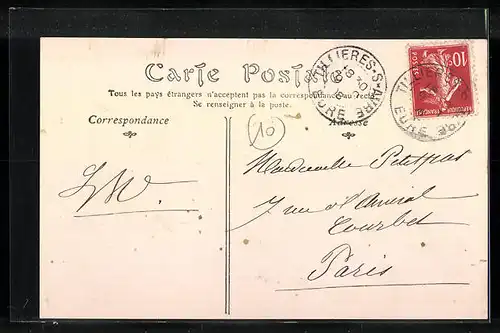 Carte Postale
Tous les pays étrangers n'acceptent pas la correspondance au recto
Se renseigner à la poste.
Correspondance
Adresse
10
TILLIERES-S-AVRE
EURE
10c
TILLIERES
EURE
Mademoiselle Petitpas
7 rue de l'Amiral
Courbet
Paris